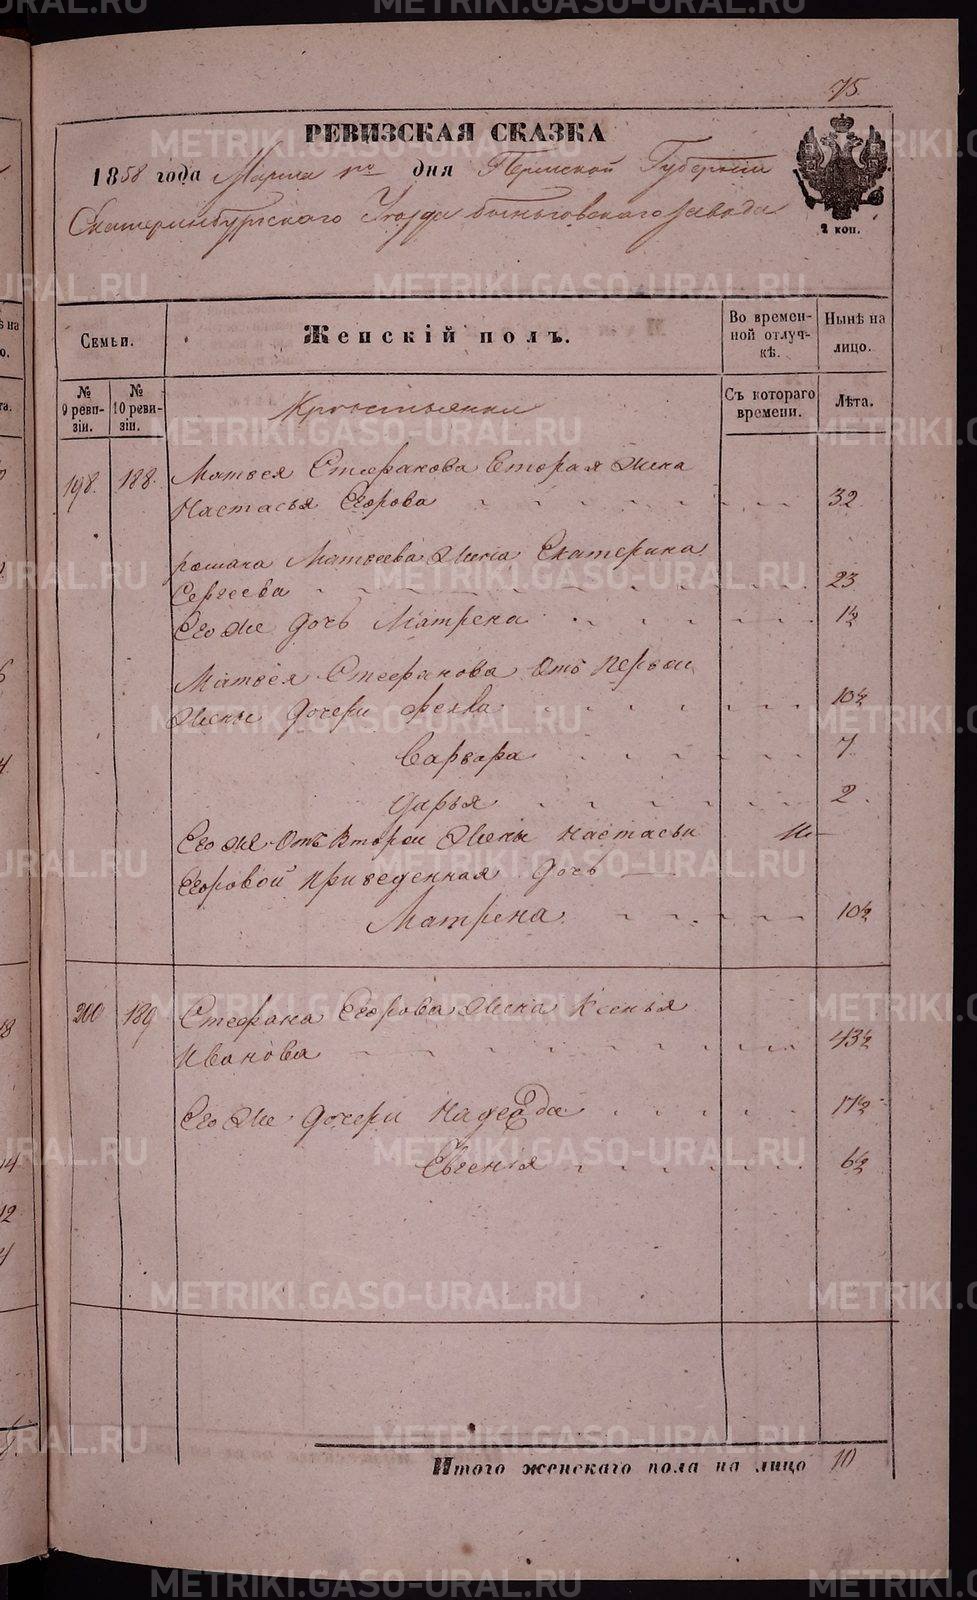 75
РЕВИЗСКАЯ СКАЗКА
1858 года Марта 1го дня Пермской Губернии
Екатеринбургского Уезда Быньговского завода
2 коп.
Семьи.
Женскій полъ.
Во времен-
ной отлуч-
кѣ.
Нынѣ на
лицо.
№
9 реви-
зіи.
№
10 реви-
зіи.
Крестьянки
Съ котораго
времени.
Лѣта.
198. 188. Матвея Стефанова Вторая Жена
Настасья Егорова 32
Матвеева Жена Екатерина
Сергеева 23
Его же дочь Матрена 1½
Матвея Стефанова Отъ Первой
Жены дочери Фекла 10½
Варвара 7
Дарья 2
Его же Отъ Второй Жены Настасьи
Егоровой приведенная дочь
Матрена 10½
200 189 Стефана Егорова Жена Ксенья
Иванова 43½
Его же дочери Надежда 17½
Евгенія 6½
Итого женскаго пола на лицо 10
METRIKI.GASO-URAL.RU